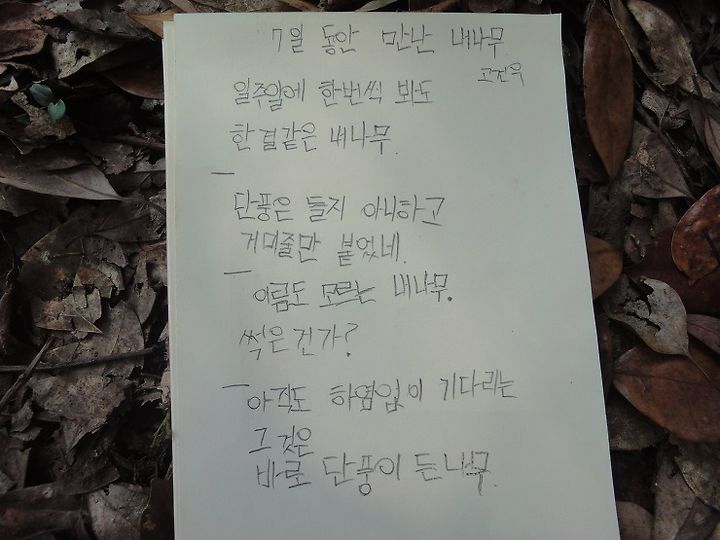 7일 동안 만난 내나무
고진욱
일주일에 한번씩 봐도
한결같은 내나무.
단풍은 들지 아니하고
거미줄만 붙었네.
이름도 모르는 내나무.
썩은건가?
아직도 하염없이 기다리는
그것은
바로 단풍이 든